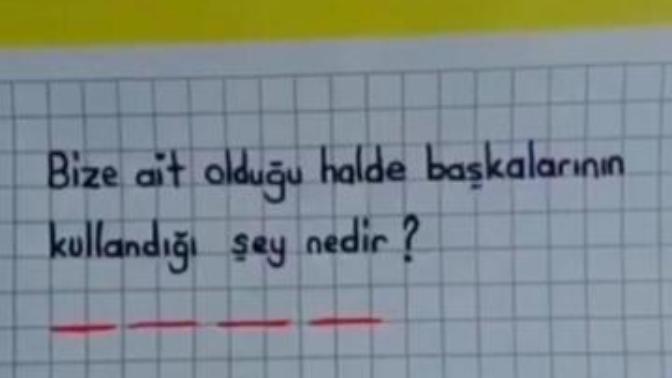 Bize ait olduğu halde başkalarının
kullandığı şey nedir?